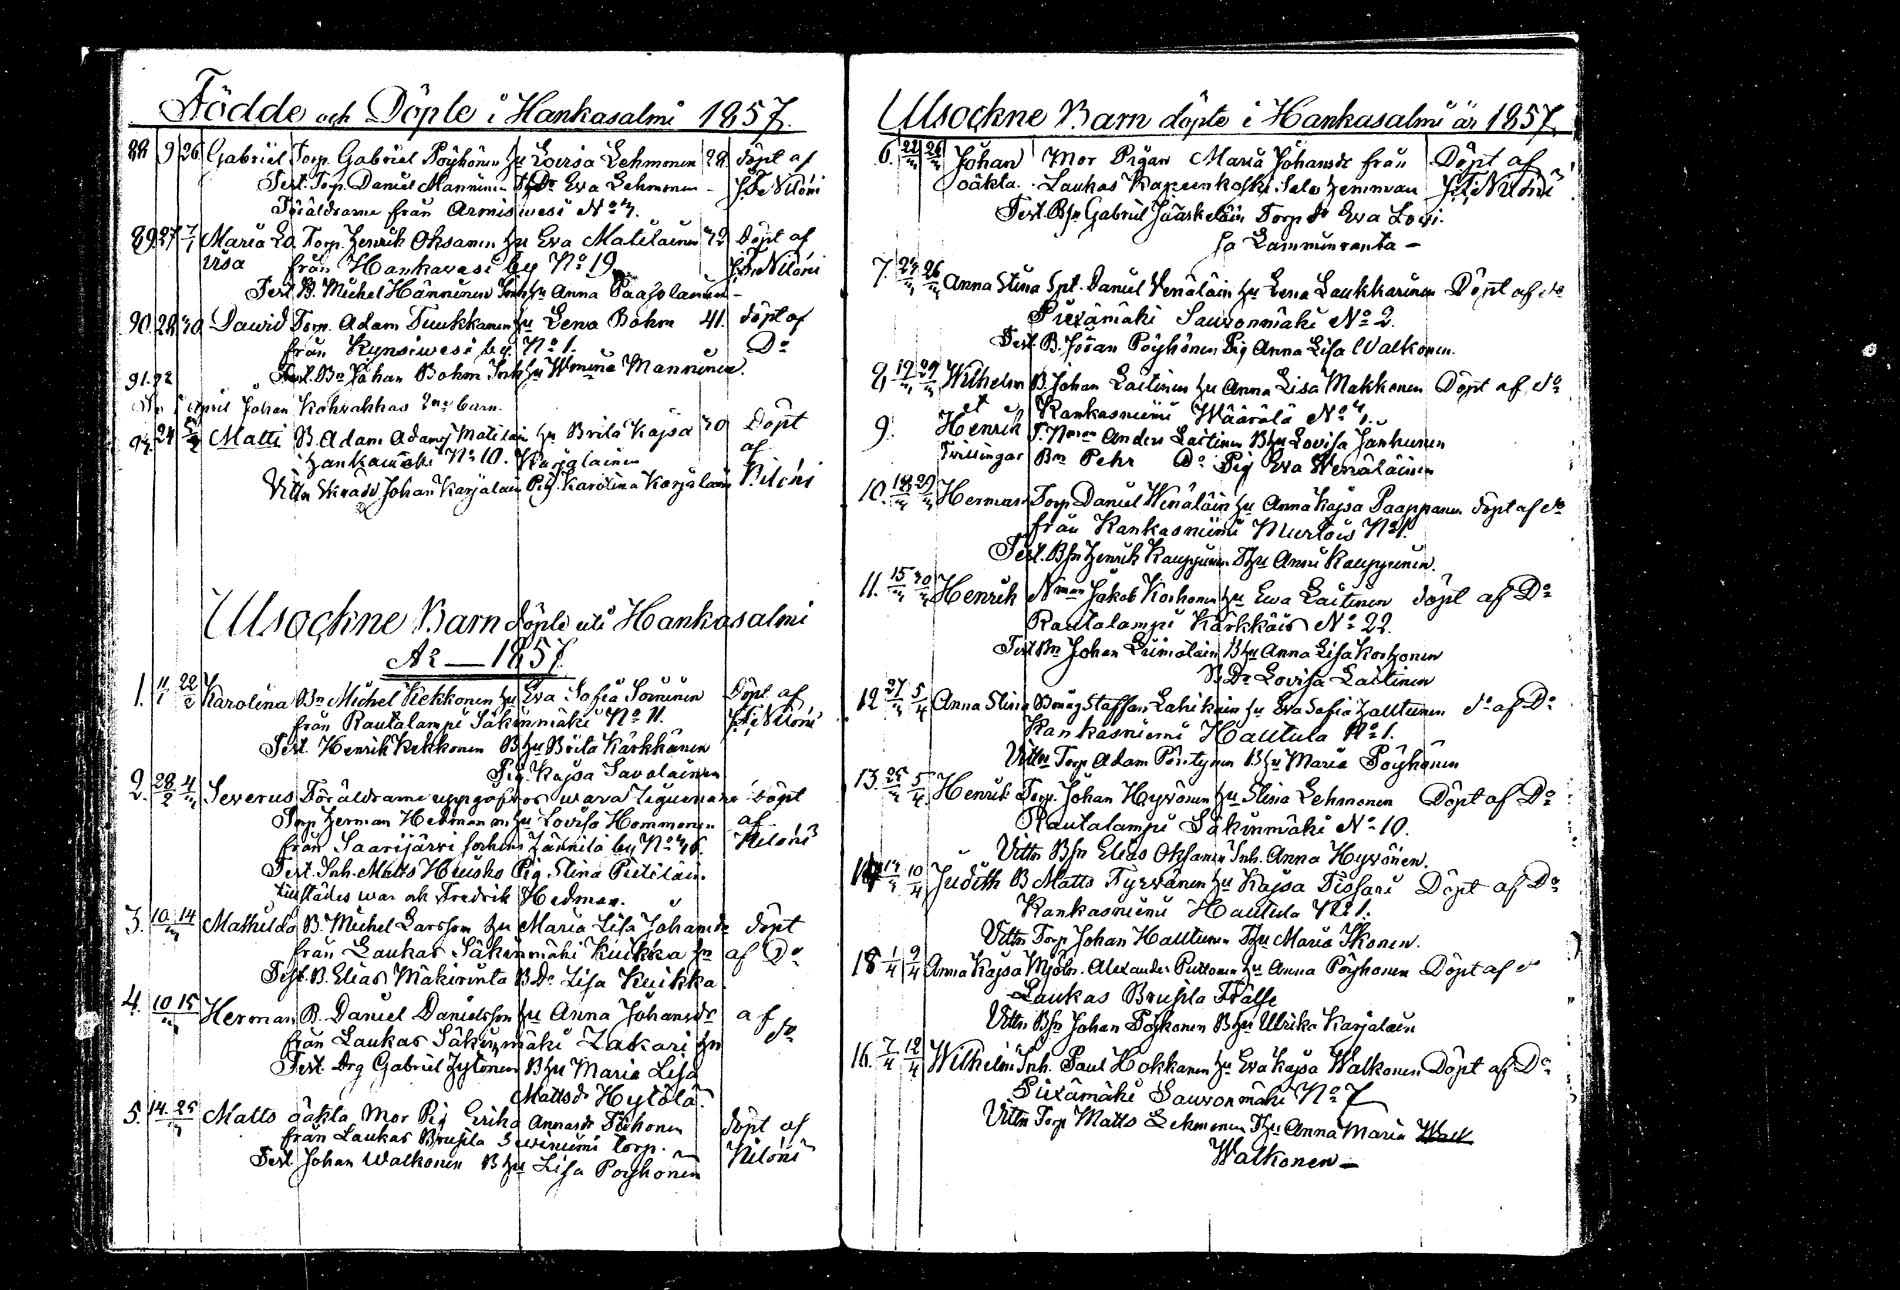 Födde och Döpte i Hankasalmi 1857.
88 9 26 Gabriel Torp. Gabriel Pöyhönen hu Lovisa Lehmonen 28 döpt af
Test. Torp. Daniel Manninen Eva Lehmonen
Föräldrarne från Armiswesi No
89 27 Maria Lo Torp. Henrik Oksanen hu Eva Matilainen 32 döpt af
visa från Hankavesi by No 19
Test. B. Michel Hänninen hu Anna Paasolainen
90. 28 30 David Torp. Adam Tuukkanen hu Lena Bohm 41. döpt af
från Kynsiwesi by No 1. Do
91. 92 Test. Bn Johan Bohm Inh hu Manninen.
April Johan barn.
24 Matti B. Adam Adamss Matilain hu Brita Kajsa 30 Döpt
No 10. Karjalainen af
Vittn Johan Karjalain Pig. Karolina Karjalain
Utsockne Barn döpte uti Hankasalmi
Ar — 1857
1. 11/1 22/2 Karolina Bn Michel Kekkonen hu Eva Sofia Soininen Döpt af
från Rautalampi Säkinmäki No 11.
Test. Henrik Kekkonen B hu Brita Kärkkäinen
Pig. Kajsa Savolainen
2. 28/2 4/m Severus Föräldrarne uppgåfvos wara döpt
Torp Herman Hedman hu Lovisa Hommonen af
från Saarijärvi by No
Test. Inh. Matts Huisko Pig. Stina Pietiläin.
tillstädes war ock Fredrik Hedman.
3. 10 14 Mathilda B. Michel Larsson hu Maria Lisa Johansdr döpt
från Laukas Säkinmäki Kuikka hn af Do
Test. B. Elias Mäkirinta B Do Lisa Kuikka
4. 10 15 Herman B. Daniel Danielsson hu Anna Johansdr af
från Laukas Säkinmäki Zakari hn do
Test. Drg Gabriel Hytönen B hu Maria Lisa
Mattsdr Hytölä.
5. 14. 25 Matts oäkta Mor Pig Erika Annasdr döpt af
från Laukas Brusila torp.
Test Johan Walkonen B hu Lisa Pöyhönen
Utsockne Barn döpte i Hankasalmi år 1857
6. 22 26 Johan Mor Pigan Maria Johansdr från Döpt af
oäkta. Laukas hemman
Test. Bsn Gabriel Jääskeläin Torp dr Eva Lovi-
sa Lamminranta —
7. 24 26 Anna Stina Spt. Daniel Venäläin hu Lena Laukkarinen Döpt af do
Pixämäki Sauvonmäki No 2.
Test. B. Jöran Pöyhönen Pig Anna Lisa Walkonen.
8 12 29 Wilhelm B Johan Laitinen hu Anna Lisa Makkonen Döpt af do
et Kankasniemi Wäärälä No
9. Henrik Anders Laitinen B hu Lovisa Janhunen
Tvillingar Bn Pehr Do Pig Eva Wenäläinen
10. 18 29 Herman Torp Daniel Wenäläin hu Anna Kajsa Paappanen döpt af do
från Kankasniemi Murtois No 1.
Test. Bsn Henrik Kauppinen Thu Anni Kauppinen.
11. 15 30 Henrik Nman Jakob Korhonen hu Ewa Laitinen döpt af Do
Rautalampi Kärkkäis No 22.
Test Bn Johan Leimolain B hu Anna Lisa Korhonen
B. Do Lovisa Laitinen
12 27 5/4 Anna Stina Staffan Lahikain hu Eva Sofia Halttunen do af Do
Kankasniemi Hautula No 1.
Vittn Torp Adam Pöntynen B hu Maria Pöyhönen
13. 25 5/4 Henrik Torp. Johan Hyvönen hu Stina Lehmonen Döpt af Do
Rautalampi Säkinmäki No 10.
Vittn Bsn Elias Oksanen Inh. Anna Hyvönen.
14 10/4 Judith B Matts Tyrvänen hu Kajsa Tissari Döpt af Do
Kankasniemi Hautula No 1.
Vittn Torp Johan Halttunen Thu Maria Ikonen.
15 1/4 9/4 Anna Kajsa Mjöln. Alexander Puttonen hu Anna Pöyhonen Döpt af do
Laukas Brusila Frälse
Vittn Bsn Johan Pöyhonen B hu Ulrika Karjalain
16. 7/4 12/4 Wilhelm Inh. Paul Hokkanen hu Eva Kajsa Walkonen Döpt af Do
Pixämäki Sauvonmäki No 7
Vittn Torp Matts Lehmonen Thu Anna Maria
Walkonen —